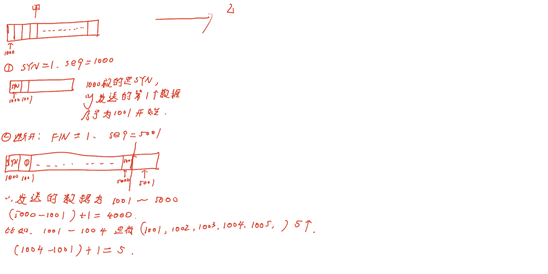 甲
乙
1000
① SYN=1、seq=1000
SYN
1000 1001
1000被给定SYN,
发送的第1个数据
序号为1001开始.
②断开: FIN=1、seq=5001
SYN ①
1000 1001
5000
5001
∴发送的数据为 1001 ~ 5000
(5000-1001)+1=4000.
比如. 1001-1004 (1001, 1002, 1003, 1004, 1005, ) 5个.
(1004-1001)+1=5.